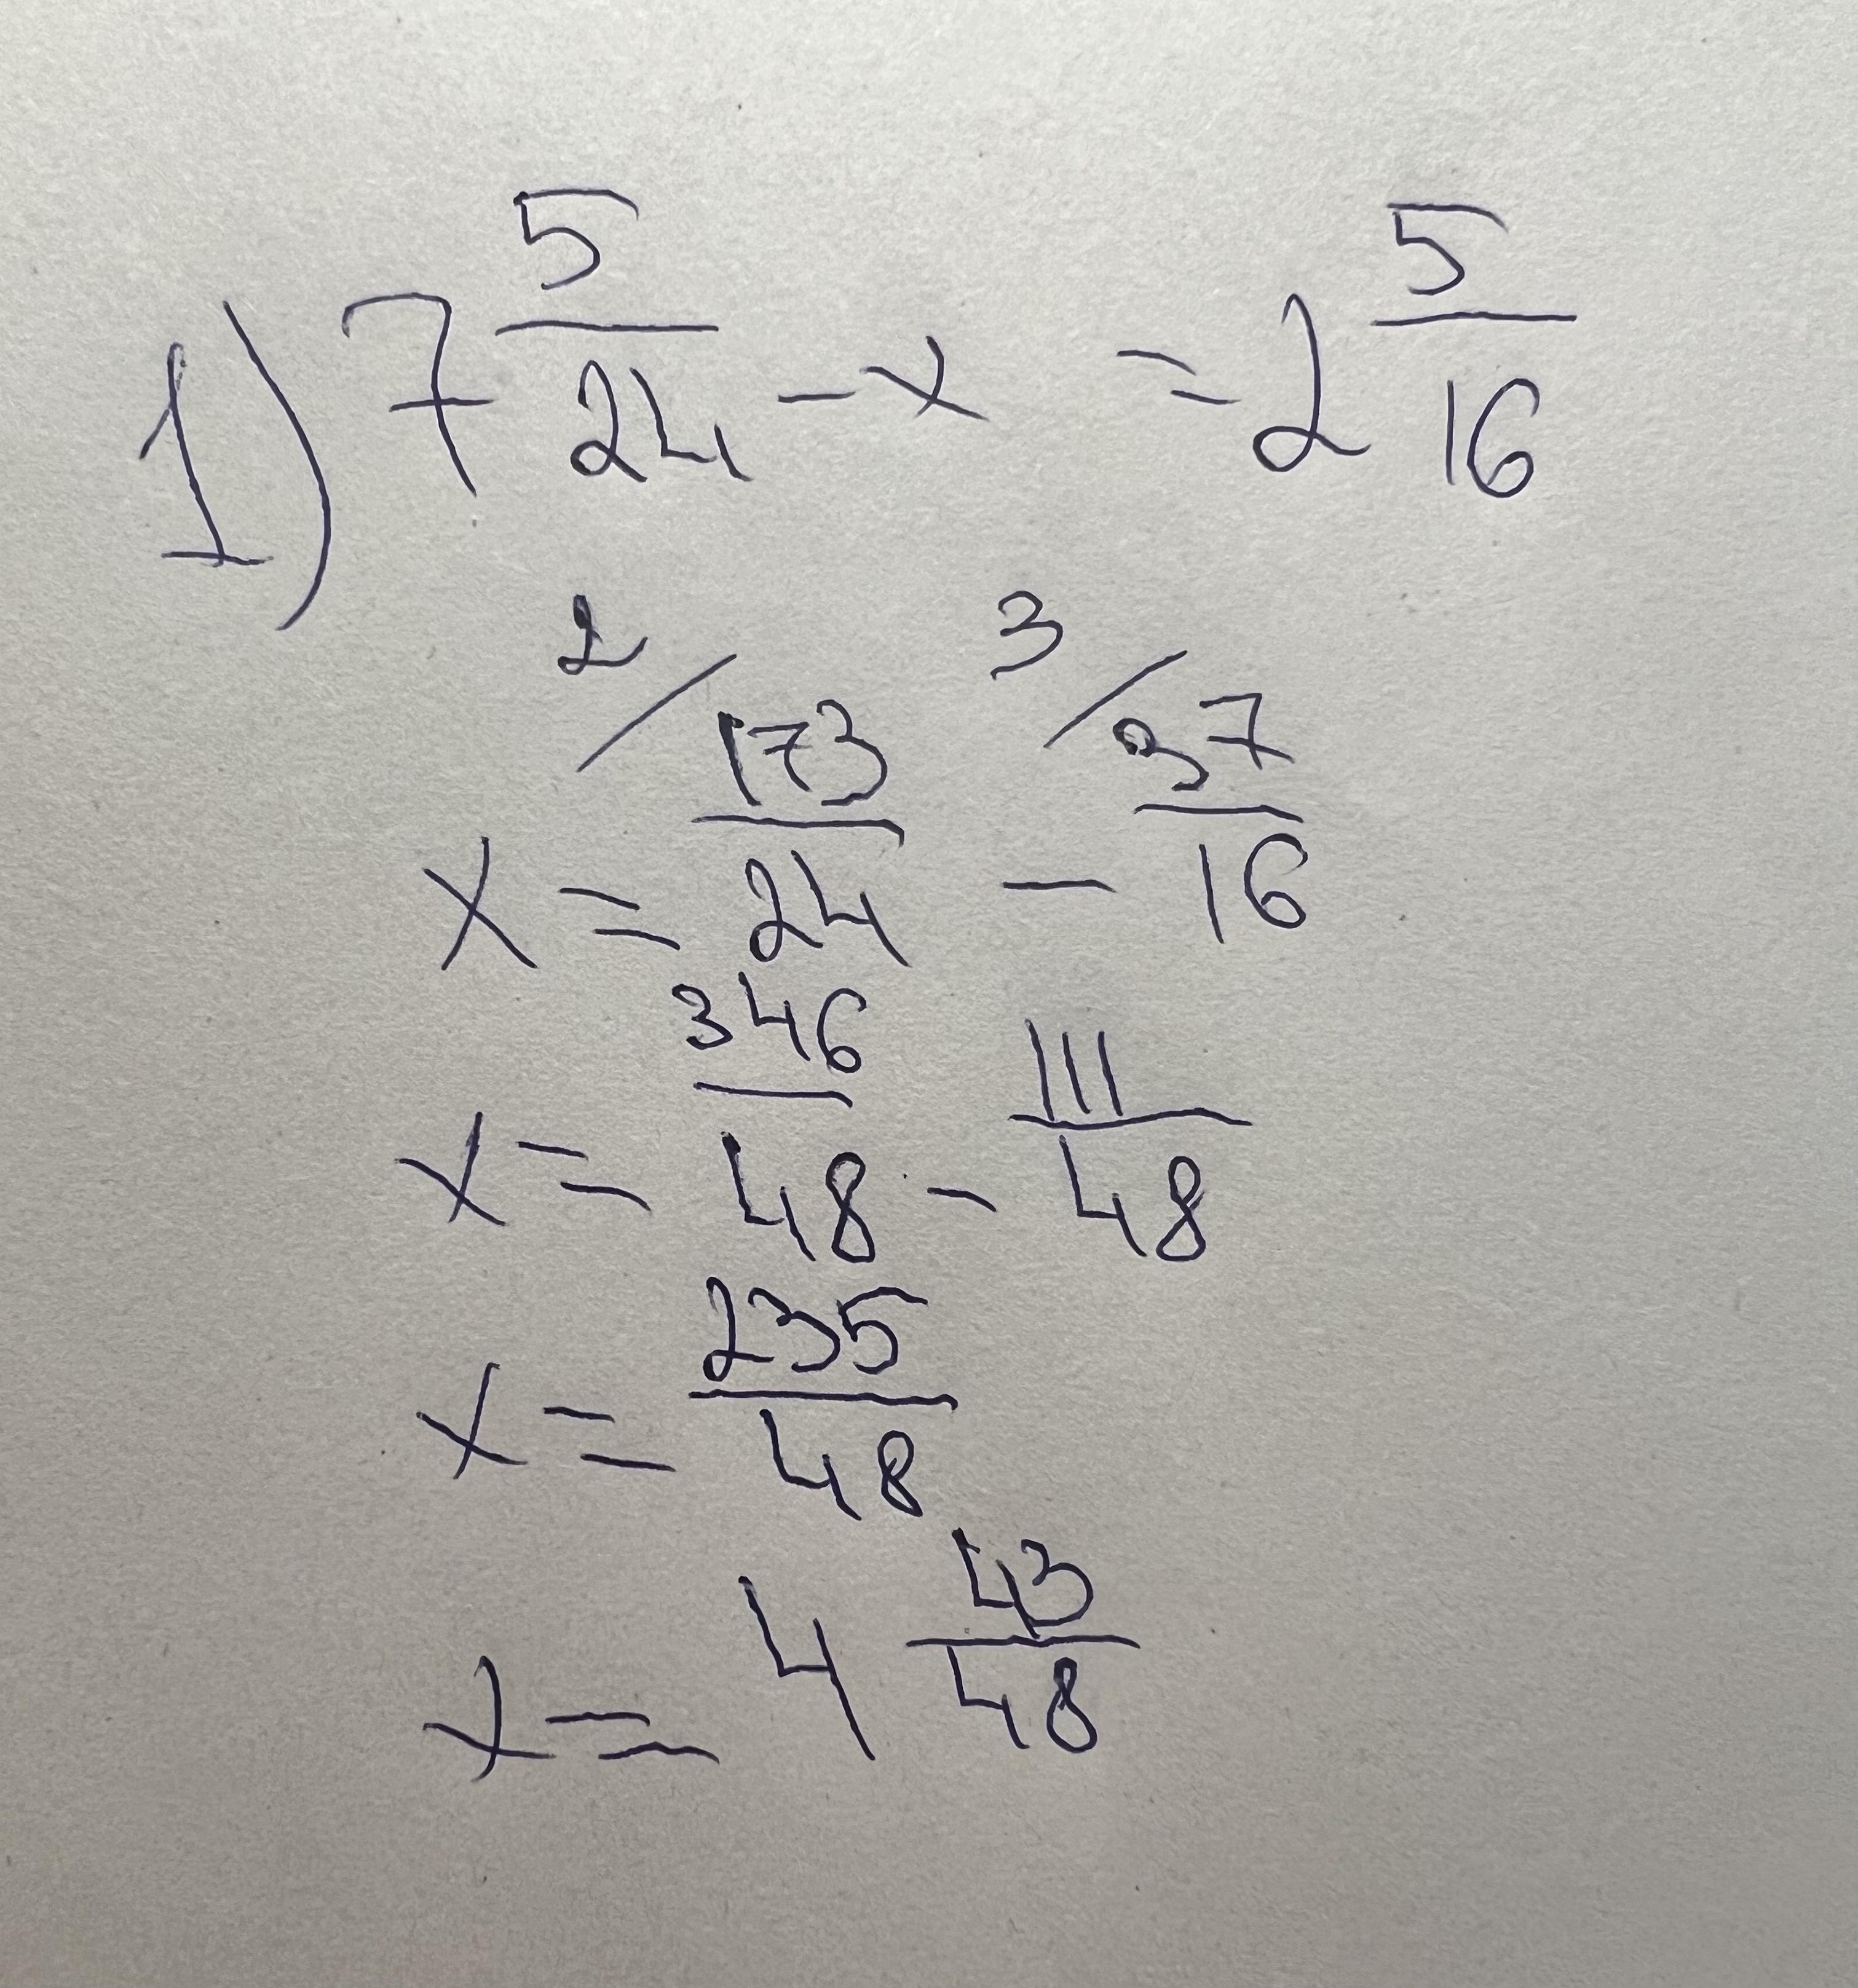 1) 7 5/24 - x = 2 5/16
2/ 3/
x = 173/24 - 37/16
x = 346/48 - 111/48
x = 235/48
x = 4 43/48